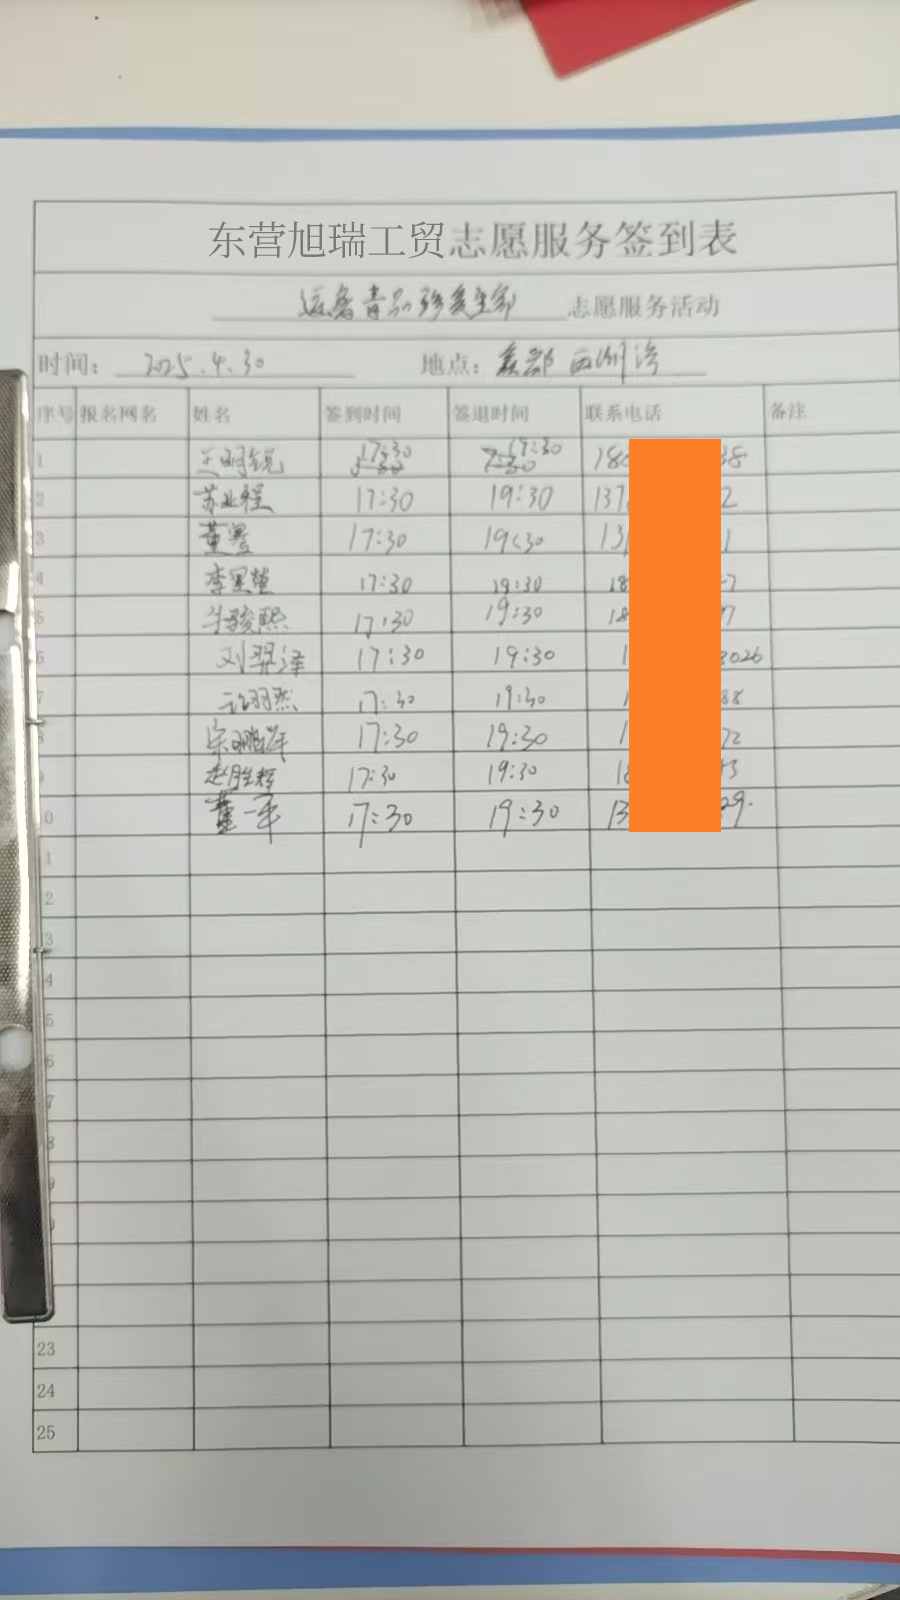 东营旭瑞工贸志愿服务签到表
远离毒品 珍爱生命 志愿服务活动
时间： 2025.4.30 地点： 西洲湾
序号 报名网名 姓名 签到时间 签退时间 联系电话 备注
1 17:30 19:30 180 38
2 苏业程 17:30 19:30 137 2
3 董 17:30 19:30 13 1
4 李 17:30 19:30 18 7
5 骏熙 17:30 19:30 18 7
6 刘羿泽 17:30 19:30 1 3026
7 17:30 19:30 1 88
8 宋鹏洋 17:30 19:30 1 72
9 赵胜辉 17:30 19:30 18 3
0 董一平 17:30 19:30 13 29
1
2
3
4
5
6
7
8
9
23
24
25